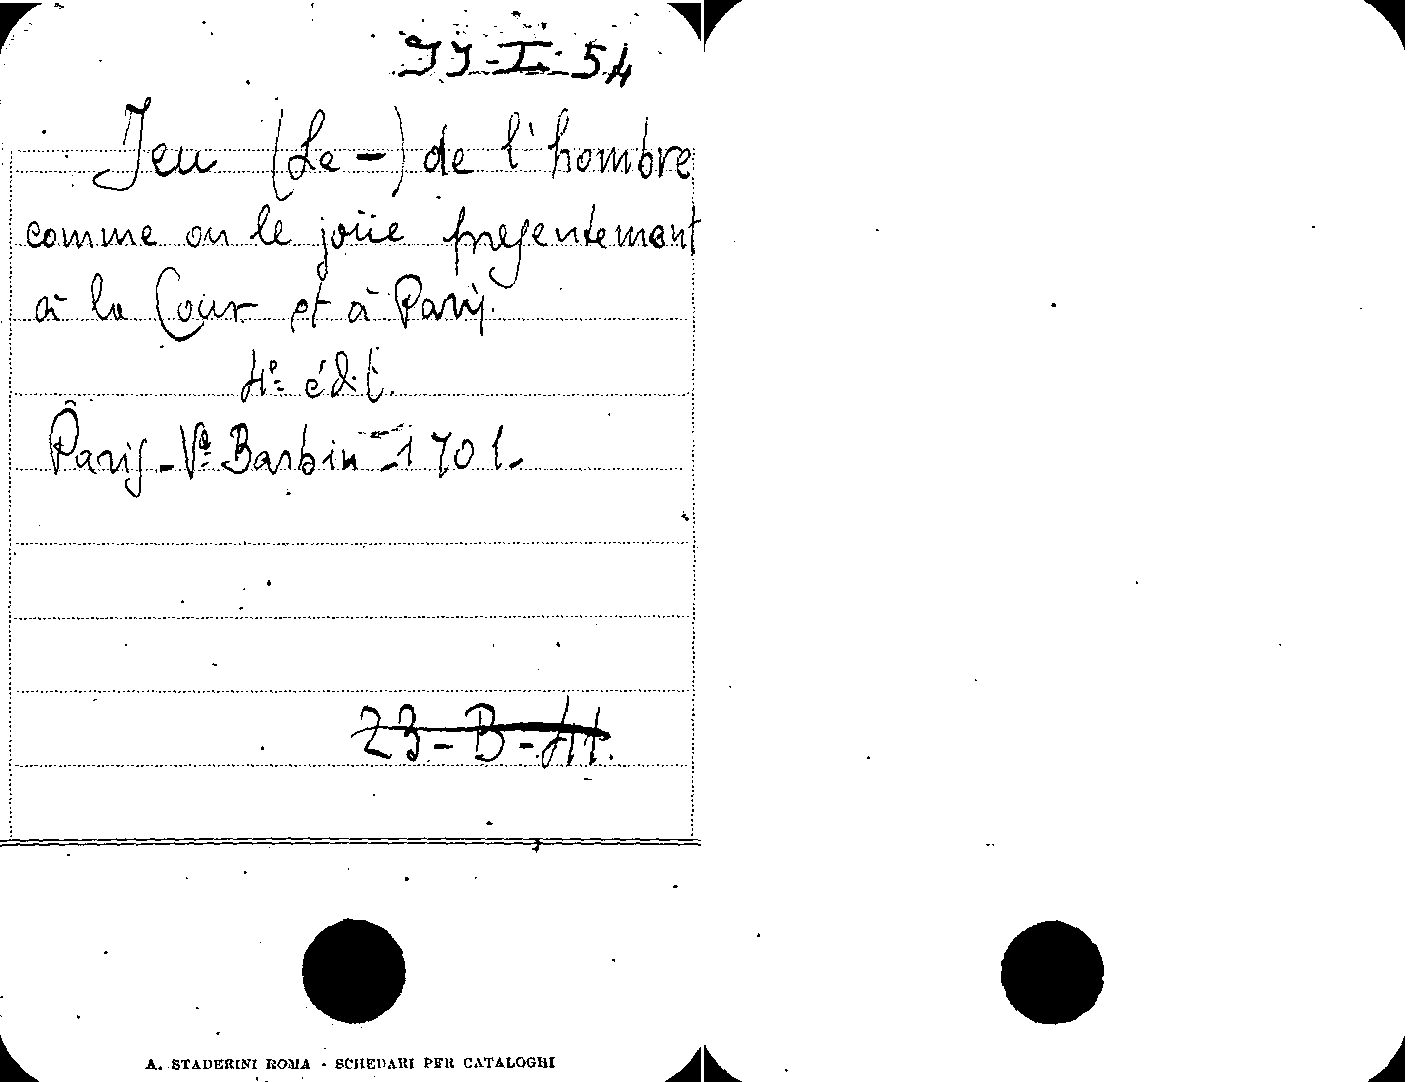 JJ-I-54
Jeu (Le -) de l'hombre
comme on le joüe presentement
à la Cour et à Paris.
4e édit.
Paris - Ve Barbin - 1701.
23 - B - 41.
A. STADERINI ROMA - SCHEDARI PER CATALOGHI